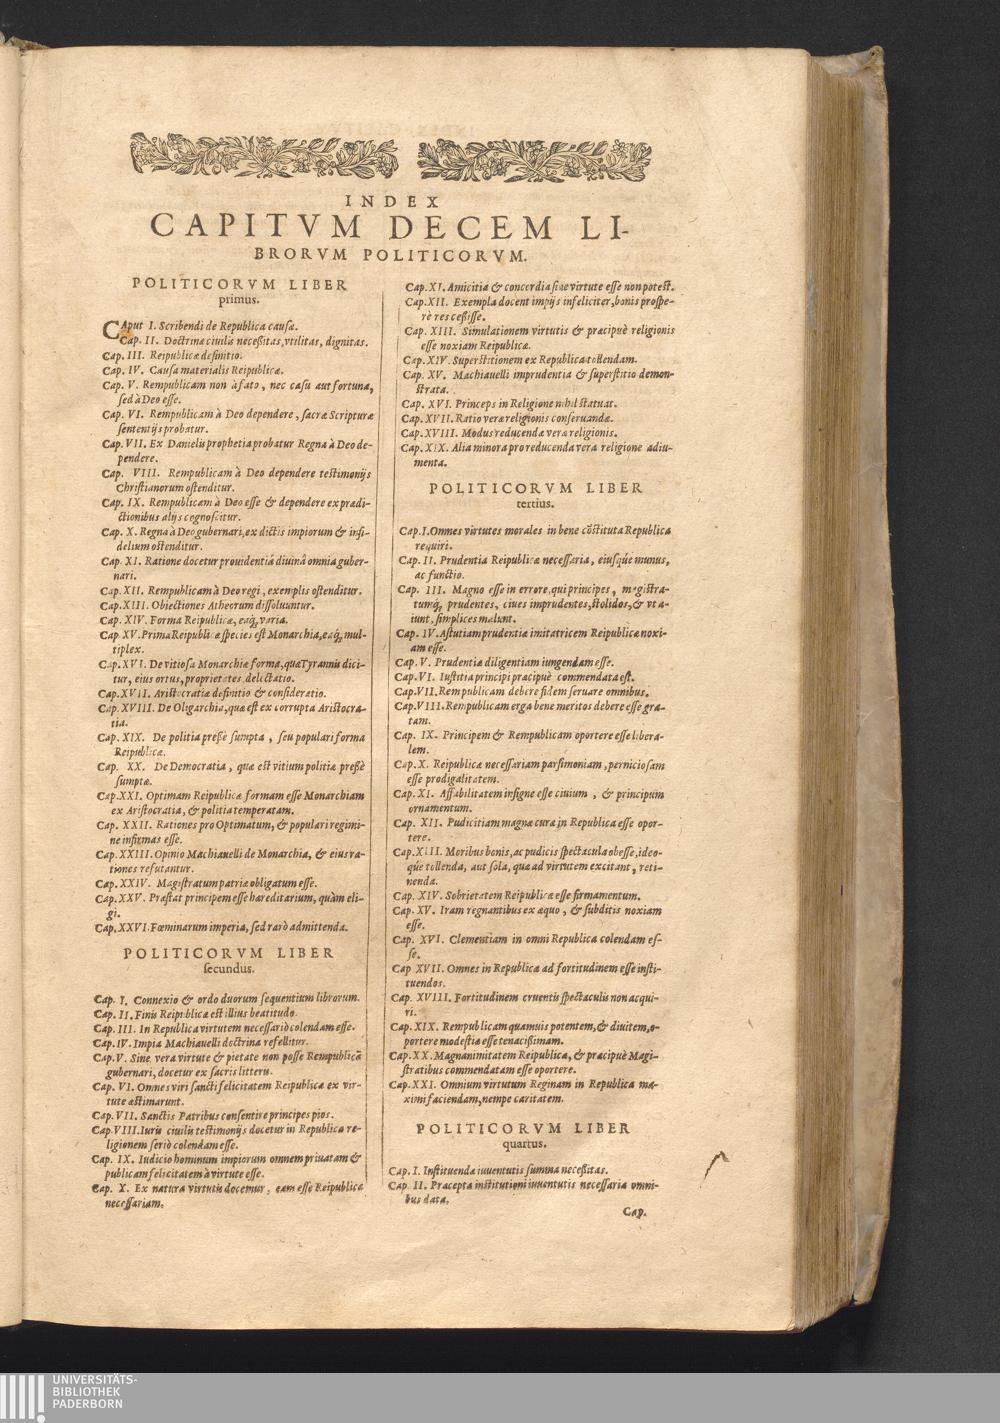 INDEX
CAPITVM DECEM LI-
BRORVM POLITICORVM.
POLITICORVM LIBER
primus.
CAput I. Scribendi de Republica causa.
Cap. II. Doctrinæ ciuilis necessitas, vtilitas, dignitas.
Cap. III. Reipublicæ definitio.
Cap. IV. Causa materialis Reipublicæ.
Cap. V. Rempublicam non à fato, nec casu aut fortuna,
sed à Deo esse.
Cap. VI. Rempublicam à Deo dependere, sacræ Scripturæ
sententijs probatur.
Cap. VII. Ex Danielis prophetia probatur Regna à Deo de-
pendere.
Cap. VIII. Rempublicam à Deo dependere testimonijs
Christianorum ostenditur.
Cap. IX. Rempublicam à Deo esse & dependere ex prædi-
ctionibus alijs cognoscitur.
Cap. X. Regna à Deo gubernari, ex dictis impiorum & infi-
delium ostenditur.
Cap. XI. Ratione docetur prouidentiâ diuinâ omnia guber-
nari.
Cap. XII. Rempublicam à Deo regi, exemplis ostenditur.
Cap. XIII. Obiectiones Atheorum dissoluuntur.
Cap. XIV. Forma Reipublicæ, eaq́; varia.
Cap. XV. Prima Reipublicæ species est Monarchia, eaq́; mul-
tiplex.
Cap. XVI. De vitiosa Monarchiæ forma, quæ Tyrannis dici-
tur, eius ortus, proprietates, delectatio.
Cap. XVII. Aristocratiæ definitio & consideratio.
Cap. XVIII. De Oligarchia, quæ est ex corrupta Aristocra-
tia.
Cap. XIX. De politia pressè sumpta, seu populari forma
Reipublicæ.
Cap. XX. De Democratia, quæ est vitium politiæ pressè
sumptæ.
Cap. XXI. Optimam Reipublicæ formam esse Monarchiam
ex Aristocratia, & politia temperatam.
Cap. XXII. Rationes pro Optimatum, & populari regimi-
ne infirmas esse.
Cap. XXIII. Opinio Machiauelli de Monarchia, & eius ra-
tiones refutantur.
Cap. XXIV. Magistratum patriæ obligatum esse.
Cap. XXV. Præstat principem esse hæreditarium, quàm eli-
gi.
Cap. XXVI. Fœminarum imperia, sed rarò admittenda.
POLITICORVM LIBER
secundus.
Cap. I. Connexio & ordo duorum sequentium librorum.
Cap. II. Finis Reipublicæ est illius beatitudo.
Cap. III. In Republica virtutem necessariò colendam esse.
Cap. IV. Impia Machiauelli doctrina refellitur.
Cap. V. Sine vera virtute & pietate non posse Rempublicā
gubernari, docetur ex sacris litteris.
Cap. VI. Omnes viri sancti felicitatem Reipublicæ ex vir-
tute æstimarunt.
Cap. VII. Sanctis Patribus consentire principes pios.
Cap. VIII. Iuris ciuilis testimonijs docetur in Republica re-
ligionem seriò colendam esse.
Cap. IX. Iudicio hominum impiorum omnem priuatam &
publicam felicitatem à virtute esse.
Cap. X. Ex natura virtutis docemur, eam esse Reipublicæ
necessariam.
Cap. XI. Amicitia & concordia sine virtute esse non potest.
Cap. XII. Exempla docent impijs infeliciter, bonis prospe-
rè res cessisse.
Cap. XIII. Simulationem virtutis & præcipuè religionis
esse noxiam Reipublicæ.
Cap. XIV. Superstitionem ex Republica tollendam.
Cap. XV. Machiauelli imprudentia & superstitio demon-
strata.
Cap. XVI. Princeps in Religione nihil statuat.
Cap. XVII. Ratio veræ religionis conseruandæ.
Cap. XVIII. Modus reducendæ veræ religionis.
Cap. XIX. Alia minora pro reducenda vera religione adiu-
menta.
POLITICORVM LIBER
tertius.
Cap. I. Omnes virtutes morales in bene cōstituta Republica
requiri.
Cap. II. Prudentia Reipublicæ necessaria, eiusq́ue munus,
ac functio.
Cap. III. Magno esse in errore, qui principes, magistra-
tumq́; prudentes, ciues imprudentes, stolidos, & vt a-
iunt, simplices malunt.
Cap. IV. Astutiam prudentiæ imitatricem Reipublicæ noxi-
am esse.
Cap. V. Prudentiæ diligentiam iungendam esse.
Cap. VI. Iustitia principi præcipuè commendata est.
Cap. VII. Rempublicam debere fidem seruare omnibus.
Cap. VIII. Rempublicam erga bene meritos debere esse gra-
tam.
Cap. IX. Principem & Rempublicam oportere esse libera-
lem.
Cap. X. Reipublicæ necessariam parsimoniam, perniciosam
esse prodigalitatem.
Cap. XI. Affabilitatem insigne esse ciuium, & principum
ornamentum.
Cap. XII. Pudicitiam magnæ curæ in Republica esse opor-
tere.
Cap. XIII. Moribus bonis, ac pudicis spectacula obesse, ideo-
q́ue tollenda, aut sola, quæ ad virtutem excitant, reti-
nenda.
Cap. XIV. Sobrietatem Reipublicæ esse firmamentum.
Cap. XV. Iram regnantibus ex æquo, & subditis noxiam
esse.
Cap. XVI. Clementiam in omni Republica colendam es-
se.
Cap XVII. Omnes in Republica ad fortitudinem esse insti-
tuendos.
Cap. XVIII. Fortitudinem cruentis spectaculis non acqui-
ri.
Cap. XIX. Rempublicam quamuis potentem, & diuitem, o-
portere modestiæ esse tenacissimam.
Cap. XX. Magnanimitatem Reipublicæ, & præcipuè Magi-
stratibus commendatam esse oportere.
Cap. XXI. Omnium virtutum Reginam in Republica ma-
ximi faciendam, nempe caritatem.
POLITICORVM LIBER
quartus.
Cap. I. Instituendæ iuuentutis summa necessitas.
Cap. II. Præcepta institutioni iuuentutis necessaria omni-
bus data.
Cap.
UNIVERSITÄTS-
BIBLIOTHEK
PADERBORN